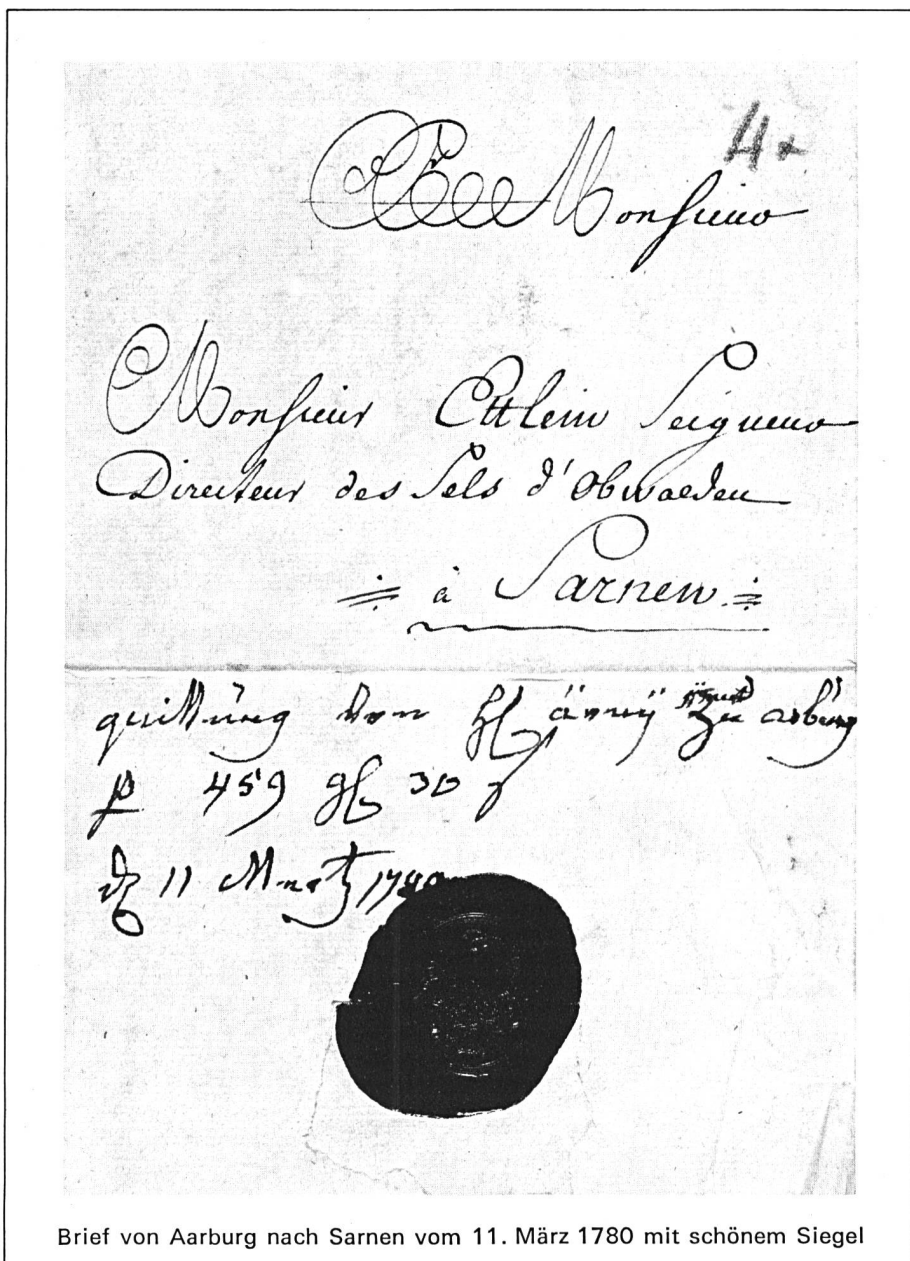 4
Monsieur
Monsieur Ettlein Seigneur
Directeur des Sels d'Obwalden
à Sarnen
quittung von zu arburg
459 gl 30
11 Mertz 1780
Brief von Aarburg nach Sarnen vom 11. März 1780 mit schönem Siegel